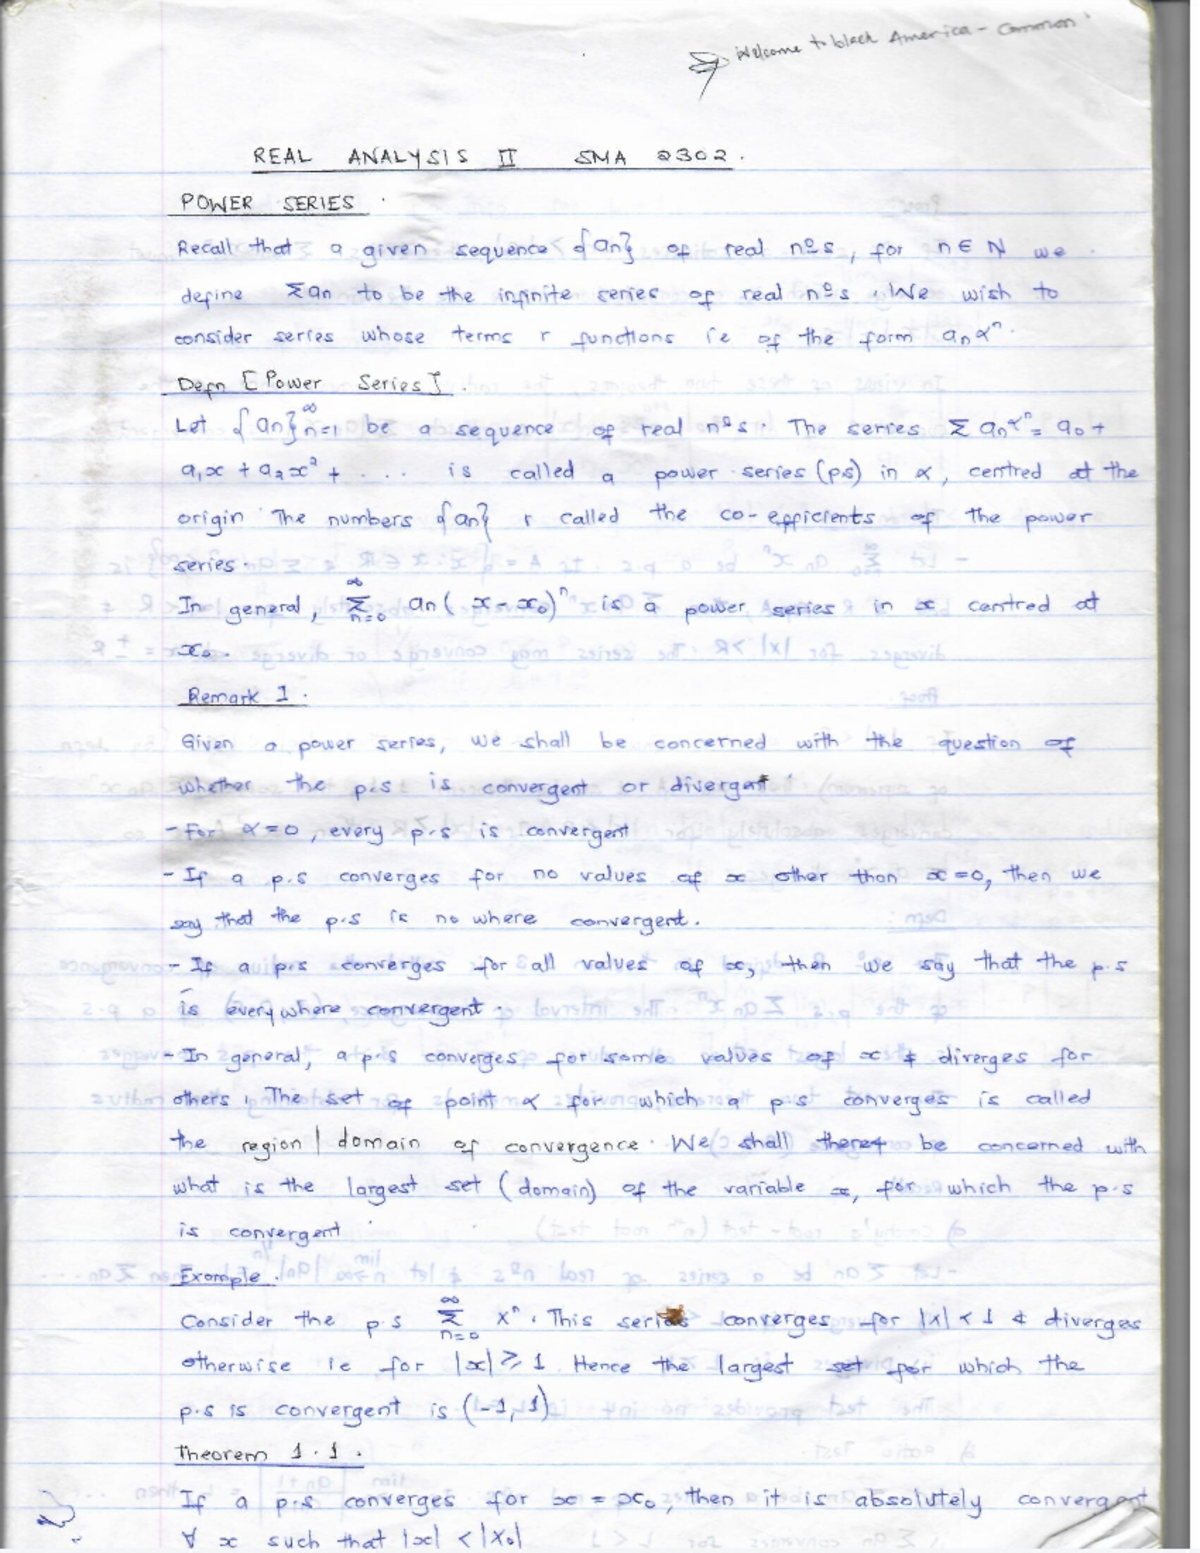 Welcome to black America - Common
REAL ANALYSIS II SMA 2302.
POWER SERIES
Recall that a given sequence {an} of real nºs, for n ∈ N we
define Σan to be the infinite series of real nºs. We wish to
consider series whose terms r functions ie of the form anxⁿ.
Defn [Power Series].
Let {an}∞n=1 be a sequence of real nºs. The series Σ anxⁿ = a0 +
a1x + a2x² + .... is called a power series (p.s) in x, centred at the
origin The numbers {an} r called the co-efficients of the power
series.
In general, ∞Σn=0 an(x-x0)ⁿ is a power series in x centred at
x0.
Remark 1.
Given a power series, we shall be concerned with the question of
whether the p.s is convergent or divergent
- For x=0, every p.s is convergent
- If a p.s converges for no values of x other than x=0, then we
say that the p.s is no where convergent.
- If a p.s converges for all values of x, then we say that the p.s
is everywhere convergent.
- In general, a p.s converges for some values of x & diverges for
others. The set of point x for which a p.s converges is called
the region / domain of convergence. We shall theref be concerned with
what is the largest set (domain) of the variable x, for which the p.s
is convergent
Example.
Consider the p.s ∞Σn=0 xⁿ. This series converges for |x| < 1 & diverges
otherwise ie for |x| ≥ 1 Hence the largest set for which the
p.s is convergent is (-1,1)
Theorem 1.1.
If a p.s converges for x = x0, then it is absolutely convergent
∀ x such that |x| < |x0|